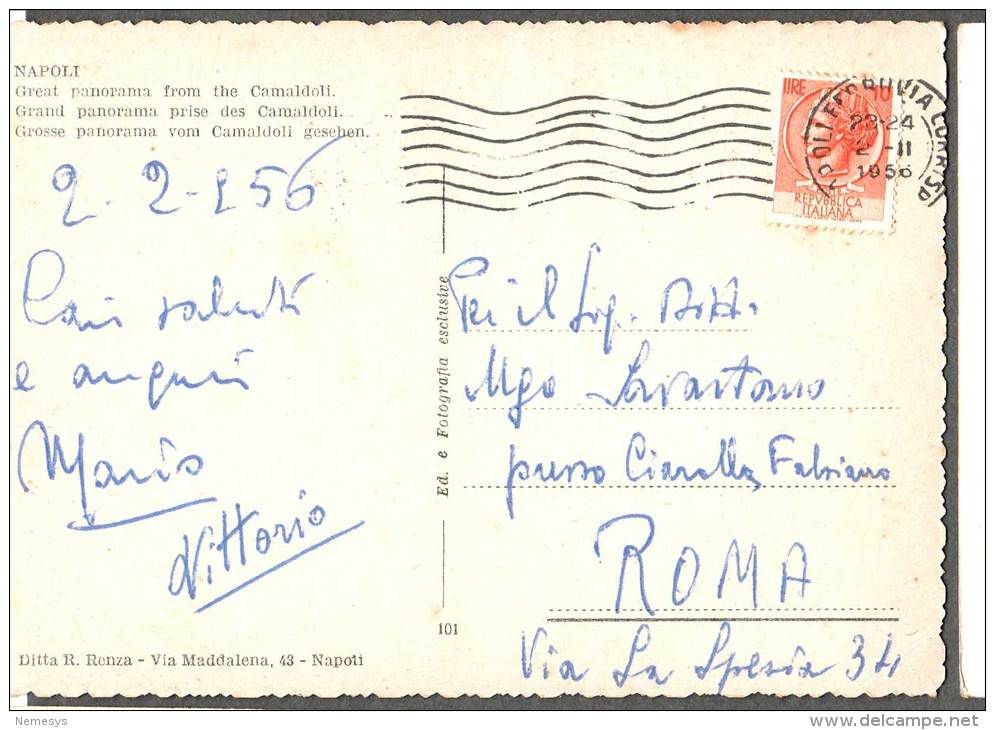 NAPOLI
Great panorama from the Camaldoli.
Grand panorama prise des Camaldoli.
Grosse panorama vom Camaldoli gesehen.
2-2-956
Cari saluti
e auguri
Mario
Vittorio
Ditta R. Renza - Via Maddalena, 43 - Napoli
Ed. e Fotografia esclusive
101
LIRE 10
REPVBBLICA
ITALIANA
23-24
2 - II
1956
Sig. Dott.
Ugo Savastano
presso Ciarolla, Fabiano
ROMA
Via La Spezia 34
Nemesys
www.delcampe.net